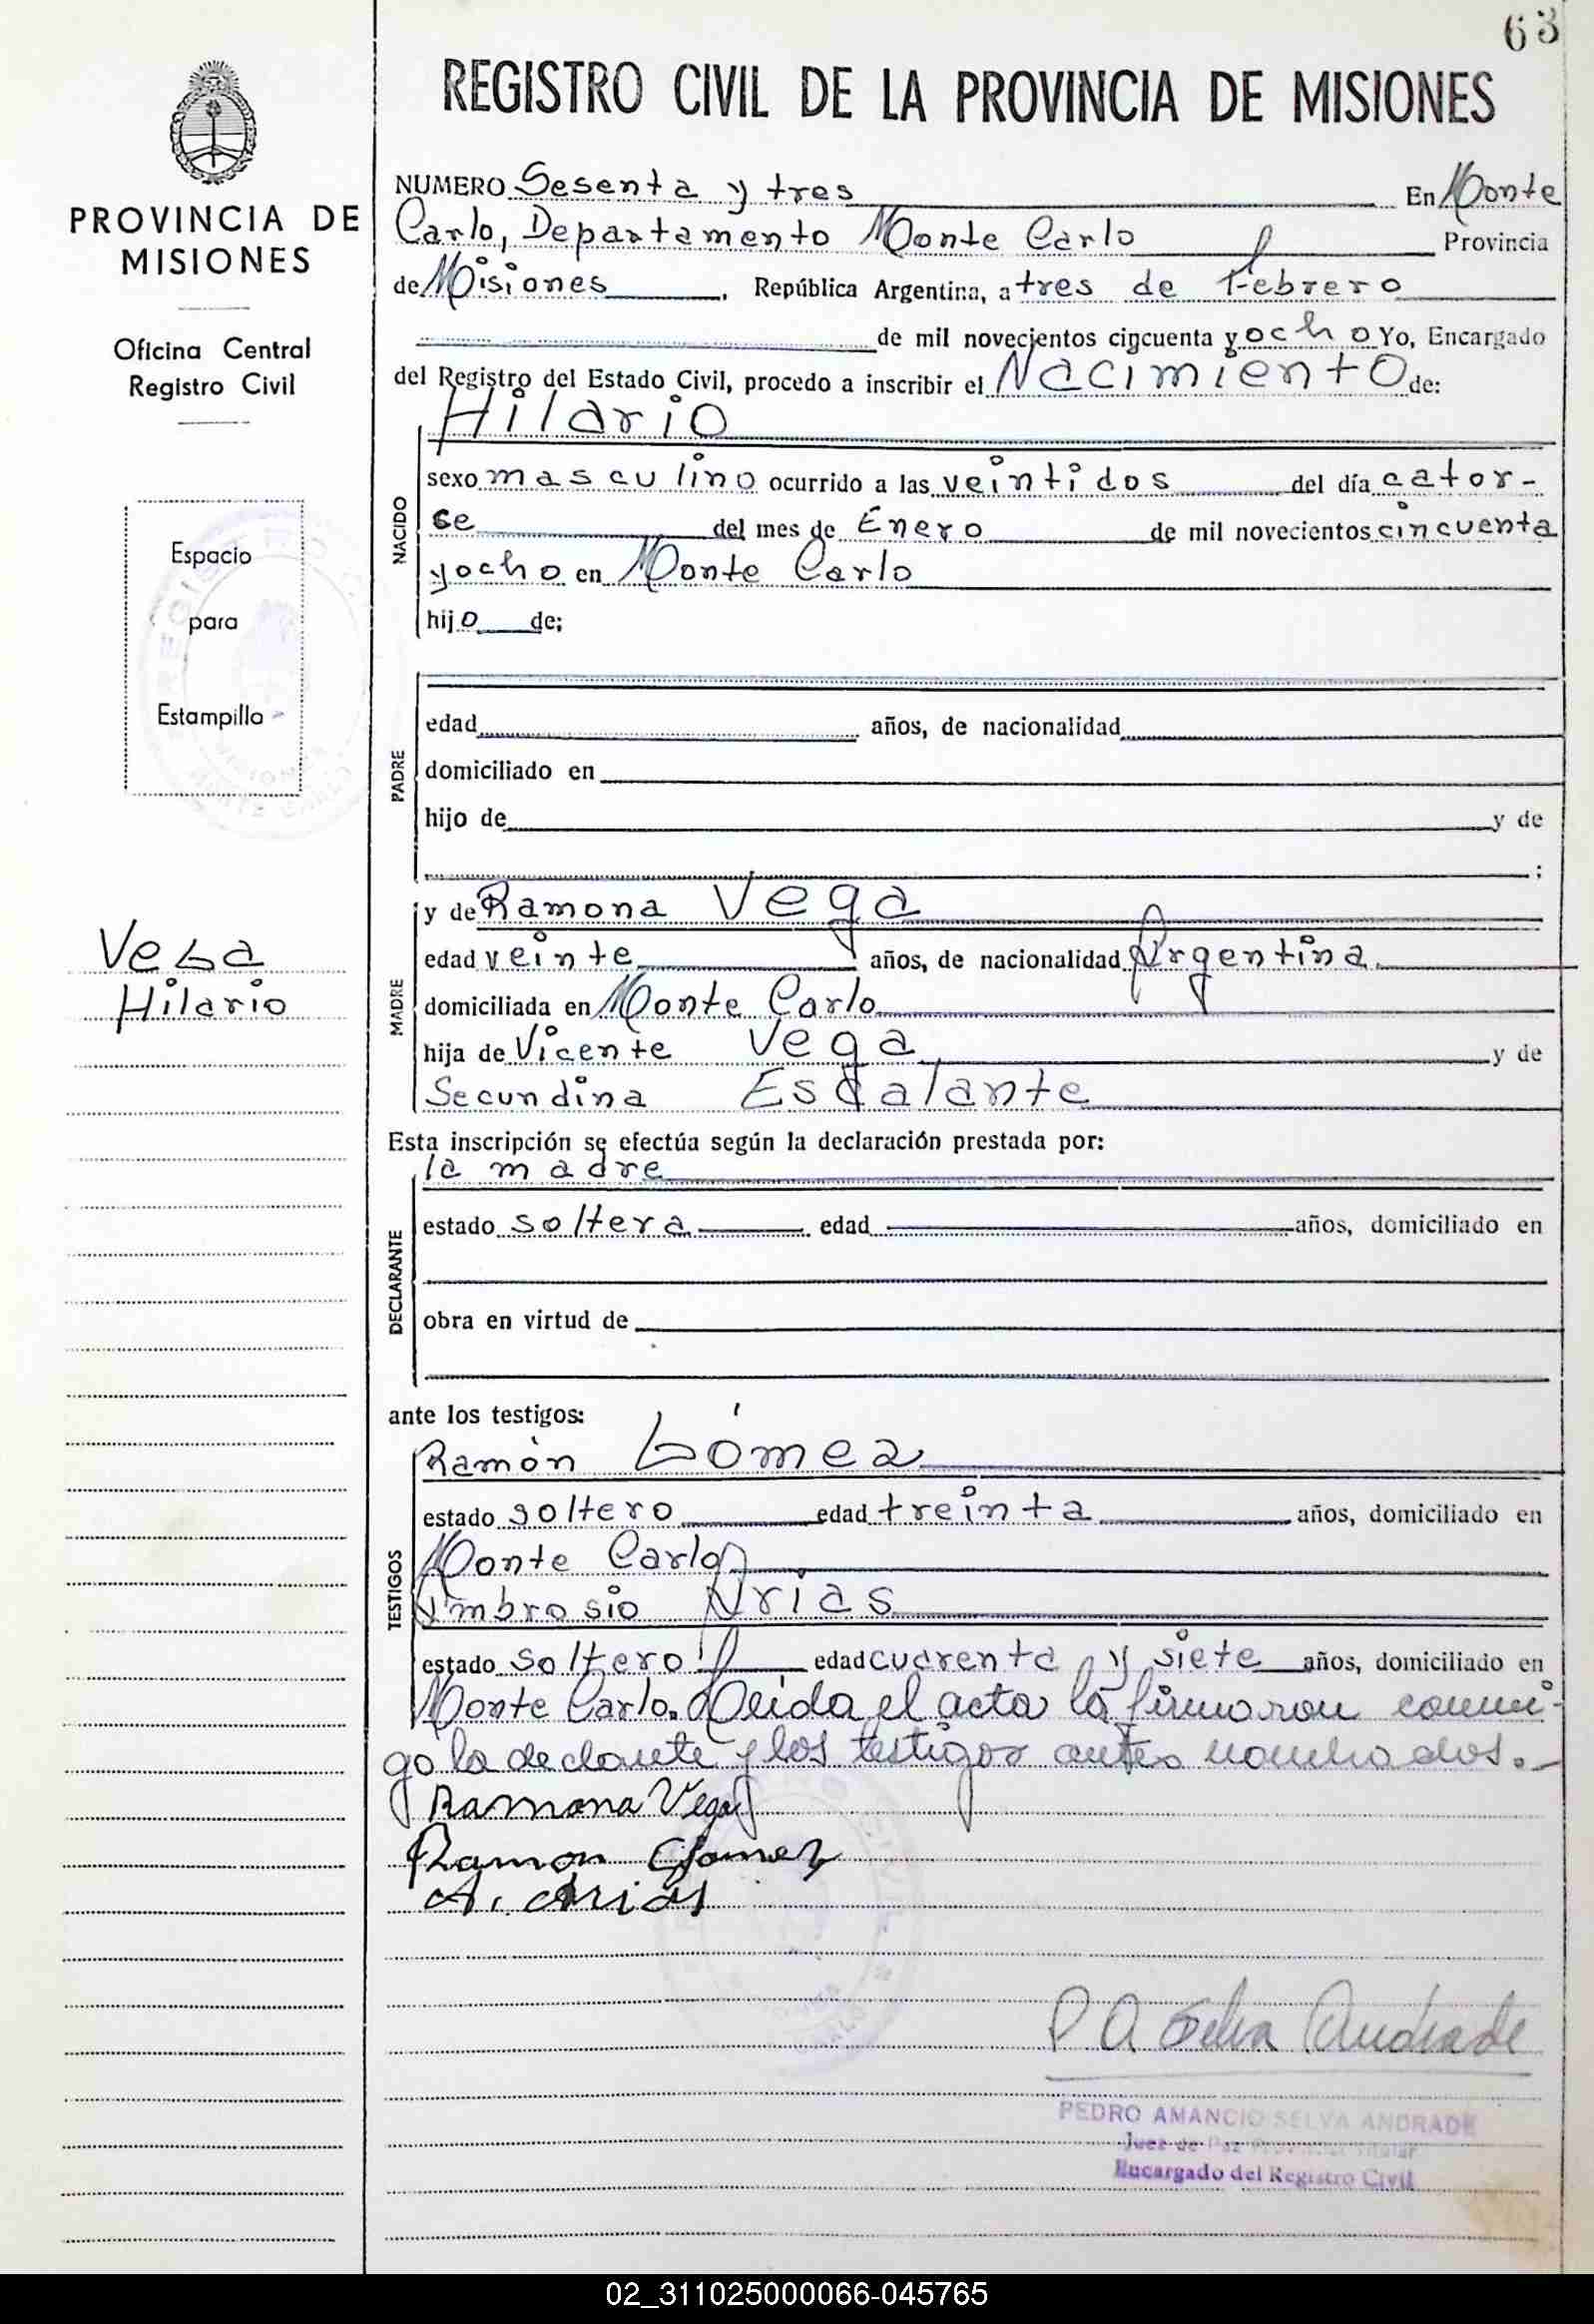 63
REGISTRO CIVIL DE LA PROVINCIA DE MISIONES
PROVINCIA DE
MISIONES
Oficina Central
Registro Civil
Espacio
para
Estampilla
Vega
Hilario
NUMERO Sesenta y tres En Monte
Carlo, Departamento Monte Carlo Provincia
de Misiones, República Argentina, a tres de Febrero
de mil novecientos cincuenta y ocho Yo, Encargado
del Registro del Estado Civil, procedo a inscribir el Nacimiento de:
Hilario
NACIDO
sexo masculino ocurrido a las veintidos del día cator-
se del mes de Enero de mil novecientos cincuenta
y ocho en Monte Carlo
hijo de;
PADRE
edad años, de nacionalidad
domiciliado en
hijo de y de
;
MADRE
y de Ramona Vega
edad veinte años, de nacionalidad Argentina.
domiciliada en Monte Carlo
hija de Vicente Vega y de
Secundina Escalante
Esta inscripción se efectúa según la declaración prestada por:
DECLARANTE
la madre
estado soltera edad años, domiciliado en
obra en virtud de
ante los testigos:
TESTIGOS
Ramòn Gómez
estado soltero edad treinta años, domiciliado en
Monte Carlo
Ambrosio Arias
estado soltero edad cuarenta y siete años, domiciliado en
Monte Carlo. Leida el acta la firmaron conmi-
go la declarante y los testigos antes nombrados.-
Ramona Vega
Ramon Gomez
A. Arias
P A Selva Andrade
PEDRO AMANCIO SELVA ANDRADE
Juez de Paz Titular
Encargado del Registro Civil
02_311025000066-045765